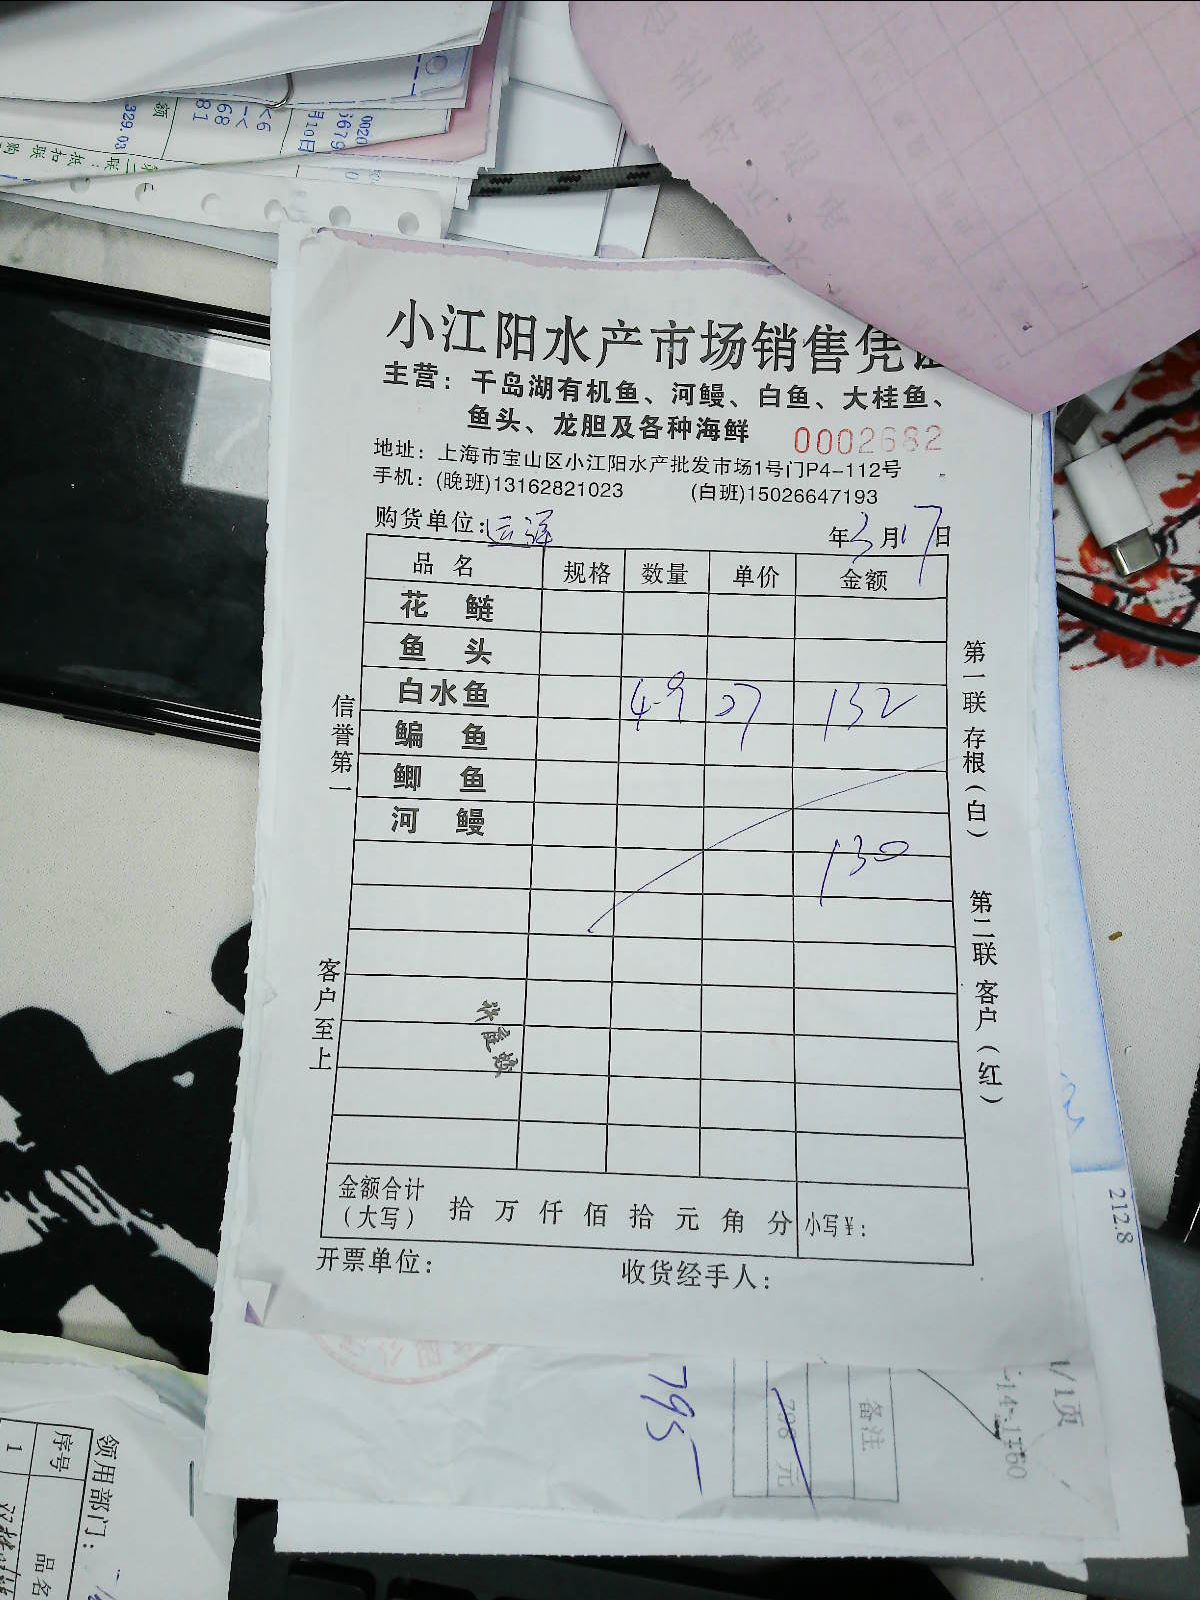 小江阳水产市场销售凭证
主营：千岛湖有机鱼、河鳗、白鱼、大桂鱼、
鱼头、龙胆及各种海鲜
0002682
地址：上海市宝山区小江阳水产批发市场1号门P4-112号
手机：(晚班)13162821023 (白班)15026647193
购货单位： 年3月17日
品名 规格 数量 单价 金额
花鲢
鱼头
白水鱼 4.9 27 132
鳊鱼
鲫鱼
河鳗
130
金额合计（大写） 拾万仟佰拾元角分 小写¥：
开票单位： 收货经手人：
信誉第一
客户至上
第一联 存根（白）
第二联 客户（红）
212.8
795
备注
798元
1/1页
领用部门：
序号
品名
1
329.03
额
68
81